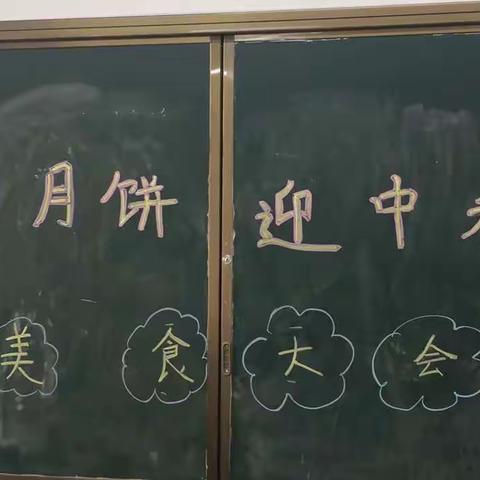 月饼迎中
美食大会